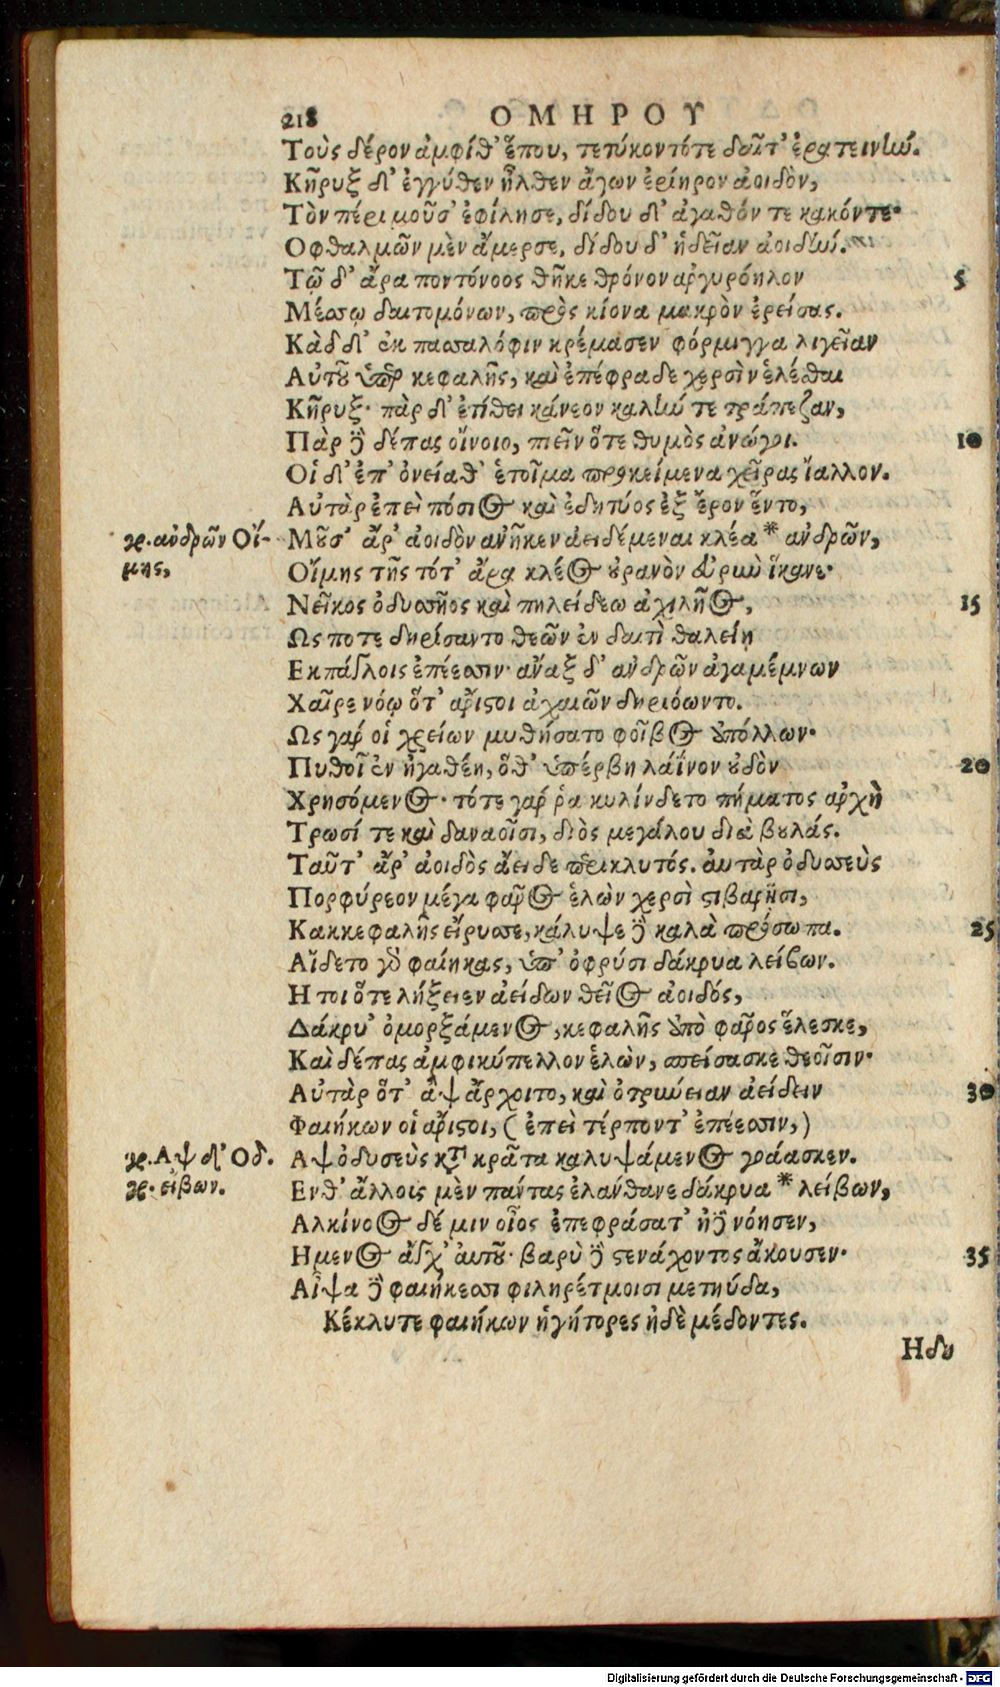 218 ΟΜΗΡΟΥ
Τοὺς δέρον ἀμφίθ' ἕπου, τετύκοντότε δαῖτ' ἐρατεινήν.
Κῆρυξ δ' ἐγγύθεν ἦλθεν ἄγων ἐρίηρον ἀοιδὸν,
Τὸν πέρι μοῦσ' ἐφίλησε, δίδου δ' ἀγαθόν τε κακόντε·
Οφθαλμῶν μὲν ἄμερσε, δίδου δ' ἡδεῖαν ἀοιδήν.
Τῷ δ' ἄρα ποντόνοος θῆκε θρόνον ἀργυρόηλον 5
Μέσσῳ δαιτομόνων, πρὸς κίονα μακρὸν ἐρείσας.
Κὰδ δ' ἐκ πασσαλόφιν κρέμασεν φόρμιγγα λιγεῖαν
Αὐτοῦ ὑπὲρ κεφαλῆς, καὶ ἐπέφραδε χερσὶν ἑλέσθαι
Κῆρυξ· πὰρ δ' ἐτίθει κάνεον καλήν τε τράπεζαν,
Πὰρ δὲ δέπας οἴνοιο, πιεῖν ὅτε θυμὸς ἀνώγοι. 10
Οἱ δ' ἐπ' ὀνείαθ' ἑτοῖμα προκείμενα χεῖρας ἴαλλον.
Αὐτὰρ ἐπεὶ πόσιος καὶ ἐδητύος ἐξ ἔρον ἕντο,
γρ. ἀνδρῶν Οἴ- Μοῦσ' ἄρ' ἀοιδὸν ἀνῆκεν ἀειδέμεναι κλέα * ἀνδρῶν,
μης, Οἴμης τῆς τότ' ἄρα κλέος οὐρανὸν εὐρὺν ἵκανε·
Νεῖκος ὀδυσσῆος καὶ πηλείδεω ἀχιλῆος, 15
Ως ποτε δηρίσαντο θεῶν ἐν δαιτὶ θαλείῃ
Εκπάγλοις ἐπέεσσιν· ἄναξ δ' ἀνδρῶν ἀγαμέμνων
Χαῖρε νόῳ ὅτ' ἄριστοι ἀχαιῶν δηριόωντο.
Ως γάρ οἱ χρείων μυθήσατο φοῖβος ἀπόλλων·
Πυθοῖ ἐν ἠγαθέῃ, ὅθ' ὑπέρβη λάϊνον οὐδὸν 20
Χρησόμενος· τότε γάρ ῥα κυλίνδετο πήματος ἀρχὴ
Τρωσί τε καὶ δαναοῖσι, διὸς μεγάλου διὰ βουλάς.
Ταῦτ' ἄρ' ἀοιδὸς ἄειδε περικλυτός. αὐτὰρ ὀδυσσεὺς
Πορφύρεον μέγα φᾶρος ἑλὼν χερσὶ στιβαρῇσι,
Κακκεφαλῆς εἴρυσσε, κάλυψε δὲ καλὰ πρόσωπα. 25
Αἴδετο γὸ φαίηκας, ὑπ' ὀφρύσι δάκρυα λείβων.
Η τοι ὅτε λήξειεν ἀείδων θεῖος ἀοιδός,
Δάκρυ' ὀμορξάμενος, κεφαλῆς ἀπὸ φᾶρος ἕλεσκε,
Καὶ δέπας ἀμφικύπελλον ἑλὼν, σπείσασκε θεοῖσιν·
Αὐτὰρ ὅτ' ἂψ ἄρχοιτο, καὶ ὀτρύνειαν ἀείδειν 30
Φαιήκων οἱ ἄριστοι, (ἐπεὶ τέρποντ' ἐπέεσσιν,)
γρ. Αψ δ' Οδ. Αψ ὀδυσεὺς κατὰ κρᾶτα καλυψάμενος γοάασκεν.
γρ. εἴβων. Ενθ' ἄλλοις μὲν πάντας ἐλάνθανε δάκρυα * λείβων,
Αλκίνοος δέ μιν οἶος ἐπεφράσατ' ἠδὲ νόησεν,
Ημενος ἄγχ' αὐτοῦ· βαρὺ δὲ στενάχοντος ἄκουσεν· 35
Αἶψα δὲ φαιήκεσσι φιληρέτμοισι μετηύδα,
Κέκλυτε φαιήκων ἡγήτορες ἠδὲ μέδοντες.
Ηδυ
Digitalisierung gefördert durch die Deutsche Forschungsgemeinschaft - DFG